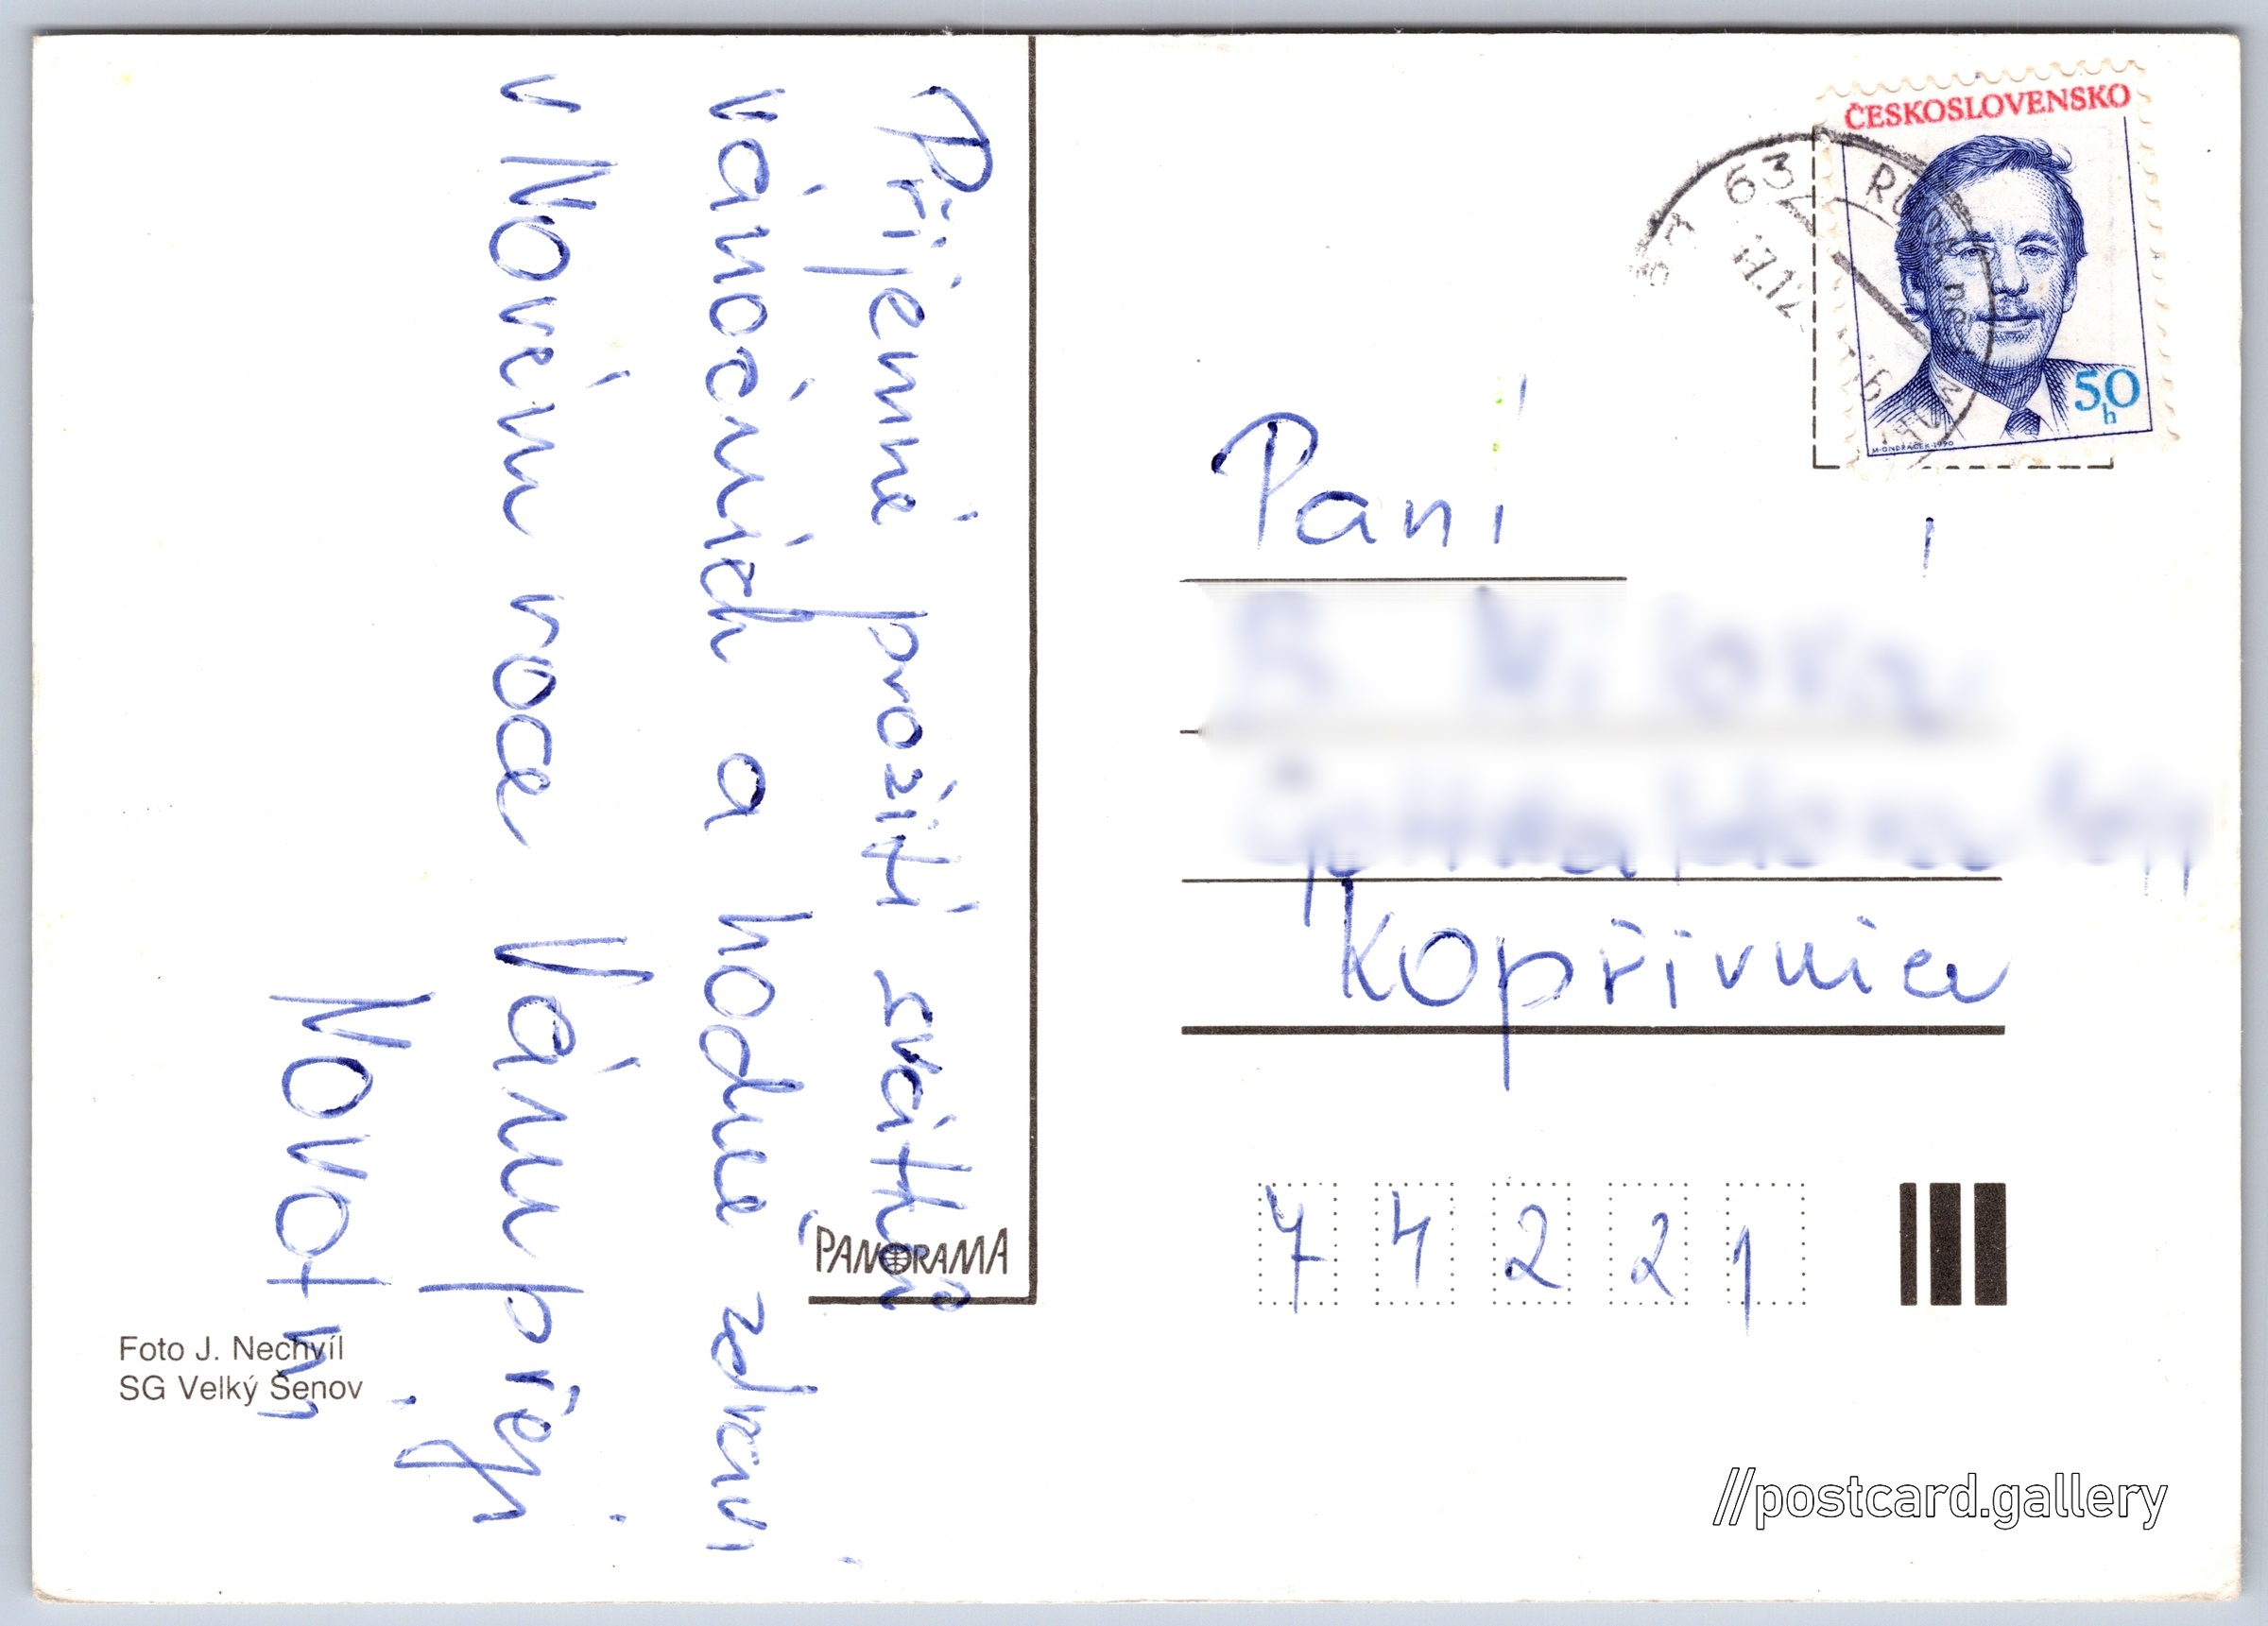 Příjemné prožití svátků
vánočních a hodně zdraví
v Novém roce Vám přejí
Novotný
PANORAMA
Foto J. Nechvíl
SG Velký Šenov
ČESKOSLOVENSKO
50
h
M. ONDRÁČEK-1990
63
17.12.
Paní
Kopřivnice
74221
//postcard.gallery